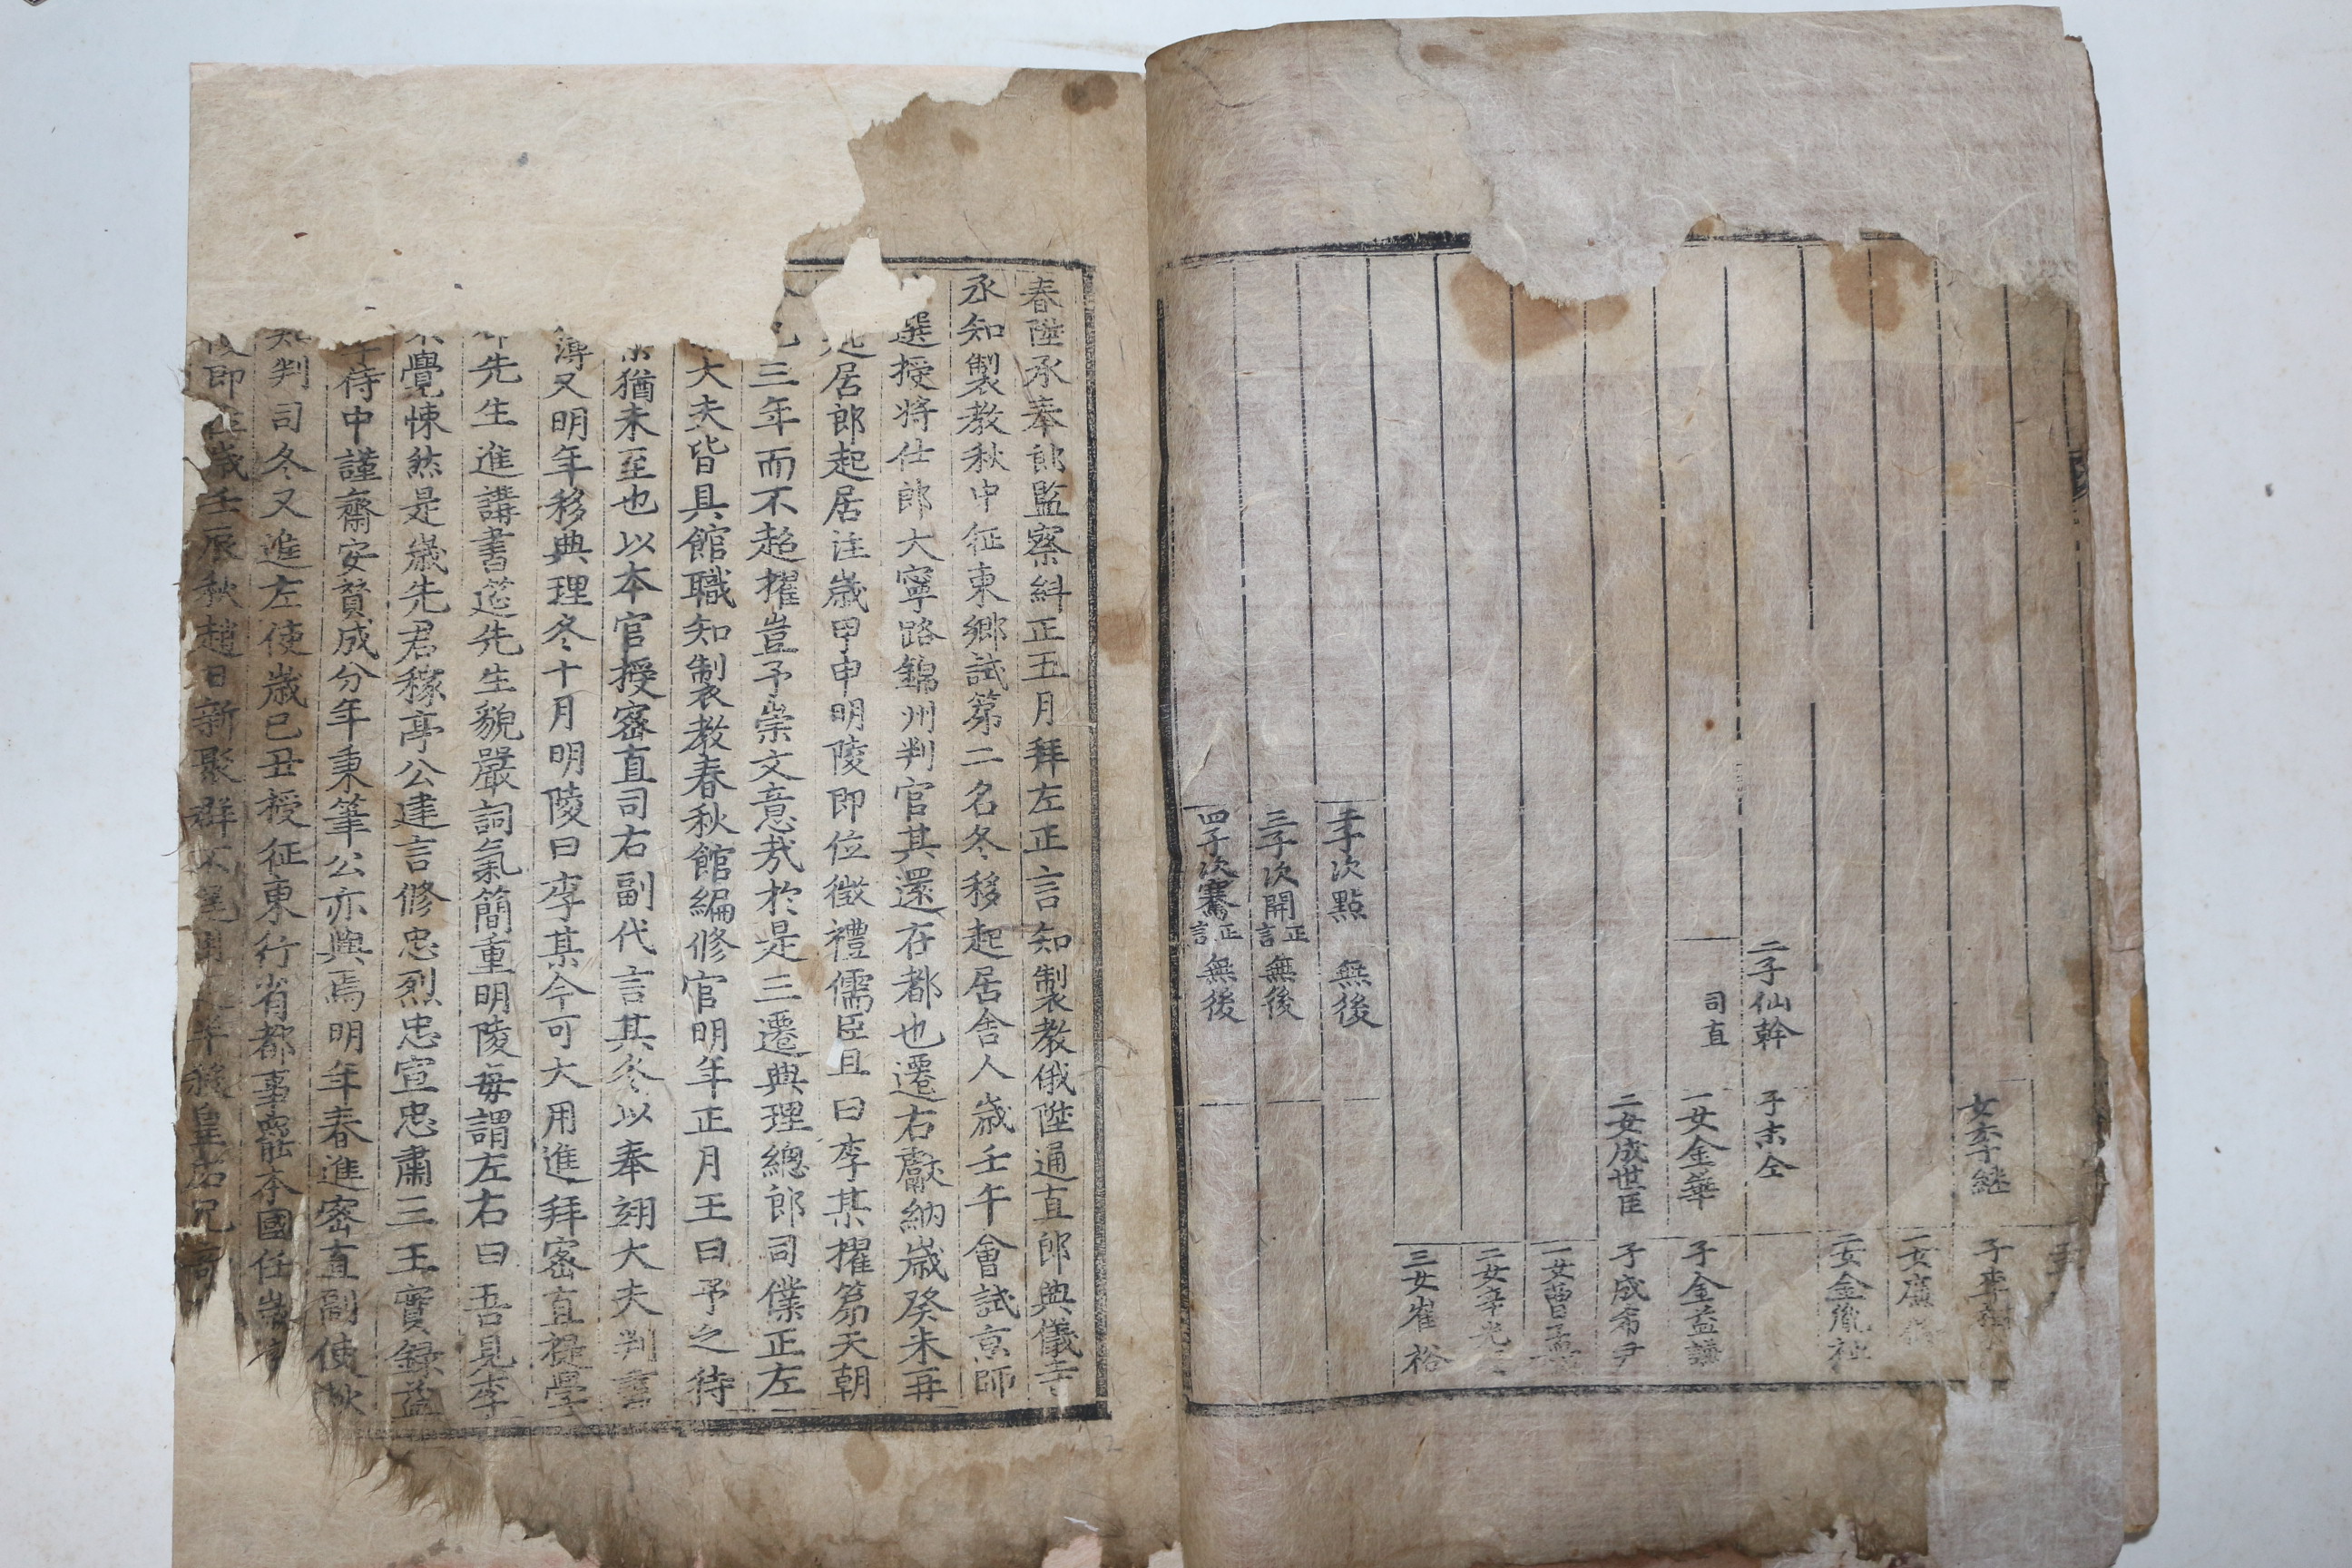 女李継
子李
一女
二女金胤祉
二子仙幹 子末仝
司直
一女金華 子金益謙
二女成世臣 子成希尹
一女曹孟
二女辛光
三女崔裕
子次點 無後
三子次開正言 無後
四子次騫正言 無後
春陞承奉郎監察糾正五月拜左正言知製教俄陞通直郎典儀寺
承知製教秋中征東鄉試第二名冬移起居舍人歳壬午會試京師
選授將仕郎大寧路錦州判官其還在都也遷右獻納歳癸未再
起居郎起居注歳甲申明陵即位徵禮儒臣且曰李某擢第天朝
三年而不超擢豈予崇文意㢤於是三遷典理總郎司僕正左
大夫皆具館職知製教春秋館編修官明年正月王曰予之待
猶未至也以本官授密直司右副代言其冬以奉翊大夫判書
簿又明年移典理冬十月明陵曰李某今可大用進拜密直提學
先生進講書筵先生貌嚴詞氣簡重明陵每謂左右曰吾見李
覺悚然是歳先君稼亭公建言修忠烈忠宣忠肅三王實録益
侍中謹齋安賛成分年秉筆公亦與焉明年春進密直副使秋
判司冬又進左使歳己丑授征東行省都事辭本國任歳
郎 歳壬辰秋趙日新聚群不逞